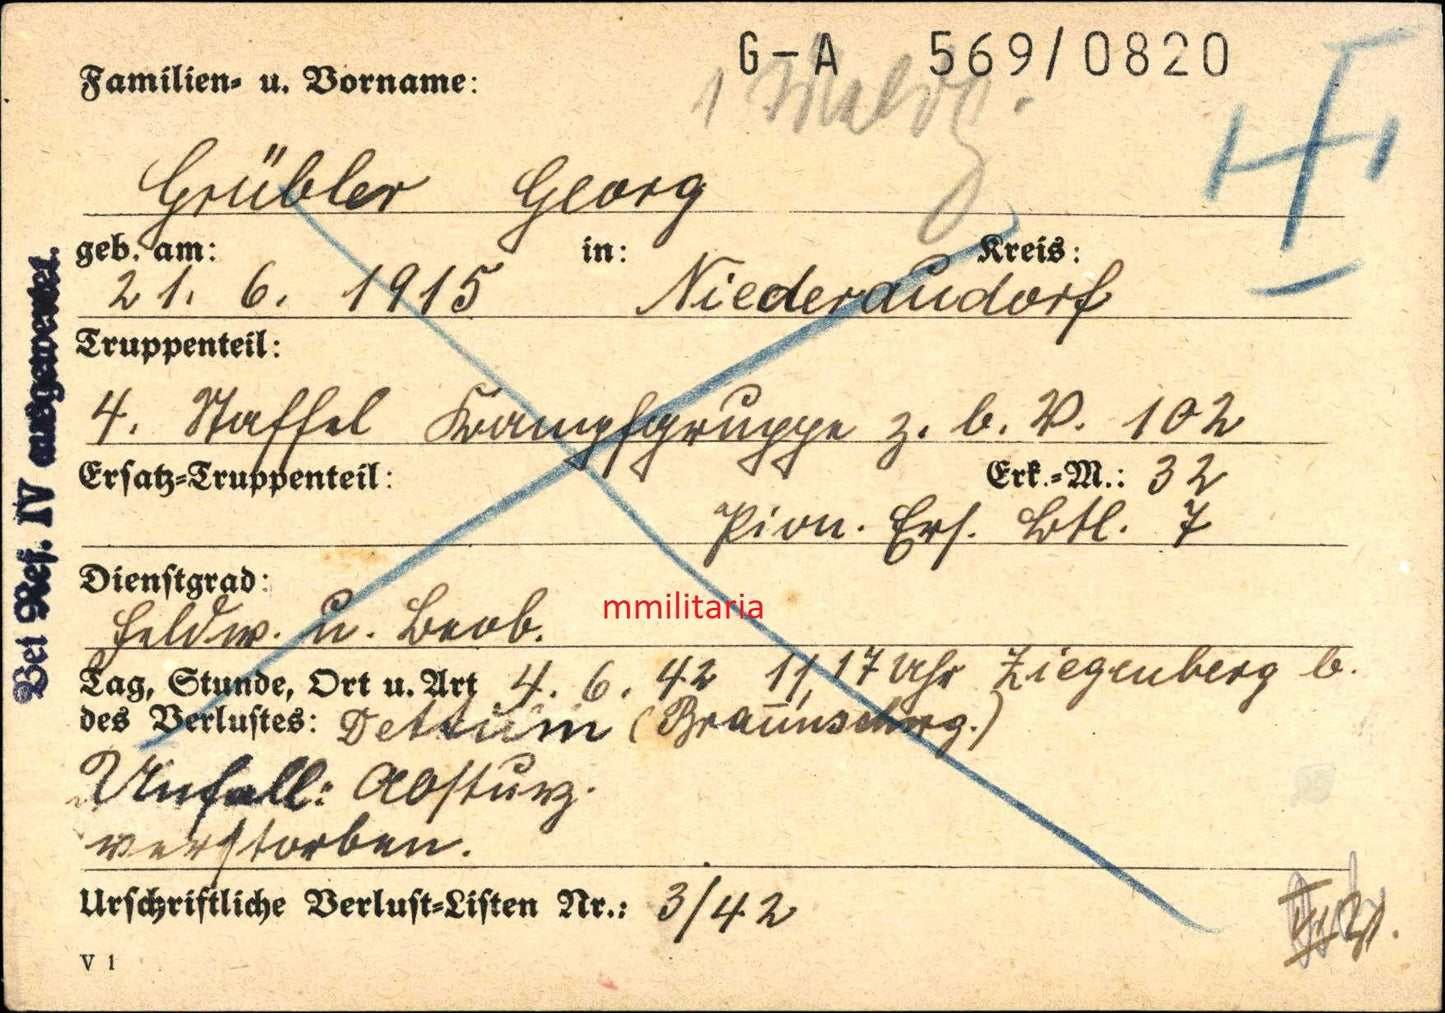 G-A 569/0820
Familien- u. Vorname:
Grübler Georg
geb. am: in: Kreis:
21. 6. 1915 Niederaudorf
Truppenteil:
4. Staffel Kampfgruppe z. b. V. 102
Ersatz-Truppenteil: Erk.-M.: 32
Pion. Ers. Btl. 7
Dienstgrad:
Feldw. u. Beob.
mmilitaria
Tag, Stunde, Ort u. Art 4. 6. 42 11,17 Uhr Ziegenberg b.
des Verlustes: Dettum (Braunschwg.)
Unfall: Absturz.
verstorben.
Urschriftliche Verlust-Listen Nr.: 3/42
V 1
Bei Ref. IV ausgewertet.